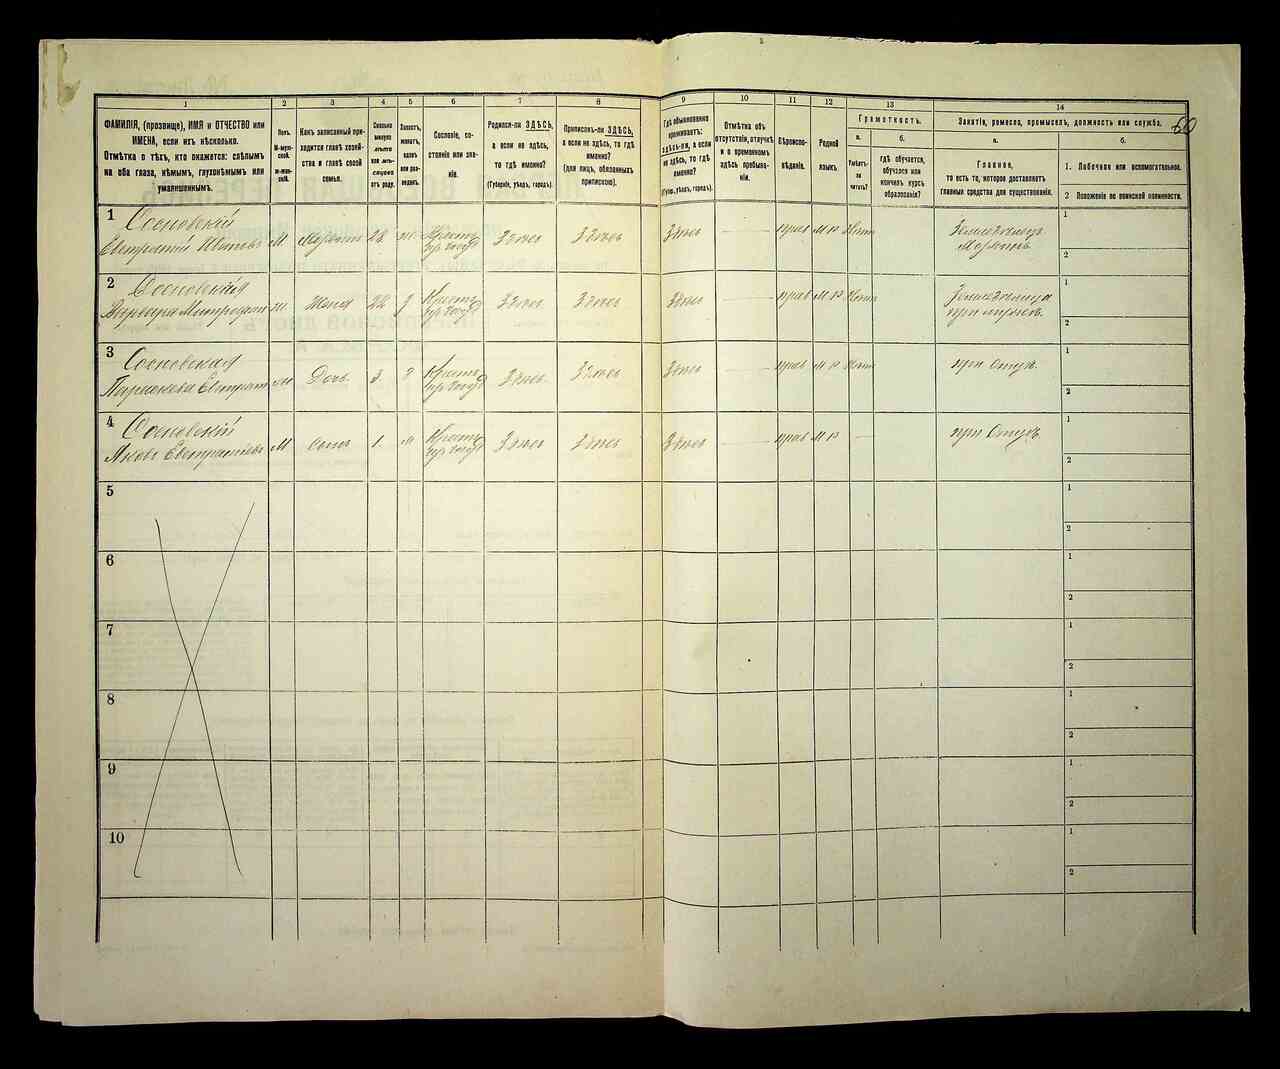 1
2
3
4
5
6
7
8
9
10
11
12
13
14
60
ФАМИЛІЯ, (прозвище), ИМЯ и ОТЧЕСТВО или
ИМЕНА, если ихъ нѣсколько.
Отмѣтка о тѣхъ, кто окажется: слѣпымъ
на оба глаза, нѣмымъ, глухонѣмымъ или
умалишеннымъ.
Полъ.
М-муж-
ской.
Ж-жен-
скій.
Какъ записанный при-
ходится главѣ хозяй-
ства и главѣ своей
семьи.
Сколько
минуло
лѣтъ
или мѣ-
сяцевъ
отъ роду.
Холостъ,
женатъ,
вдовъ
или раз-
веденъ.
Сословіе, со-
стояніе или зва-
ніе.
Родился-ли ЗДѢСЬ,
а если не здѣсь,
то гдѣ именно?
(Губернія, уѣздъ, городъ).
Приписанъ-ли ЗДѢСЬ,
а если не здѣсь, то гдѣ
именно?
(для лицъ, обязанныхъ
припискою).
Гдѣ обыкновенно
проживаетъ:
здѣсь-ли, а если
не здѣсь, то гдѣ
именно?
(Губ., уѣздъ, городъ).
Отмѣтка объ
отсутствіи, отлучкѣ
и о временномъ
здѣсь пребыва-
ніи.
Вѣроиспо-
вѣданіе.
Родной
языкъ.
Грамотность.
а.
Умѣетъ-
ли
читать?
б.
гдѣ обучается,
обучался или
кончилъ курсъ
образованія?
Занятіе, ремесло, промыселъ, должность или служба.
а.
Главное,
то есть то, которое доставляетъ
главныя средства для существованія.
б.
1. Побочное или вспомогательное.
2 Положеніе по воинской повинности.
1
Сосновскій
Евстратій
М
28
Крестъ
Здѣсь
Здѣсь
Здѣсь
прав
Нѣтъ
1
2
2
Сосновская
Варвара
ж
Жена
Крестъ
Здѣсь
Здѣсь
Здѣсь
прав
Нѣтъ
1
2
3
Сосновская
ж
Дочь
3
Крестъ
Здѣсь
Здѣсь
Здѣсь
прав
Нѣтъ
при Отцѣ
1
2
4
Сосновскій
Яковъ
М
Сынъ
1
Крестъ
Здѣсь
Здѣсь
Здѣсь
прав
при Отцѣ
1
2
5
1
2
6
1
2
7
1
2
8
1
2
9
1
2
10
1
2